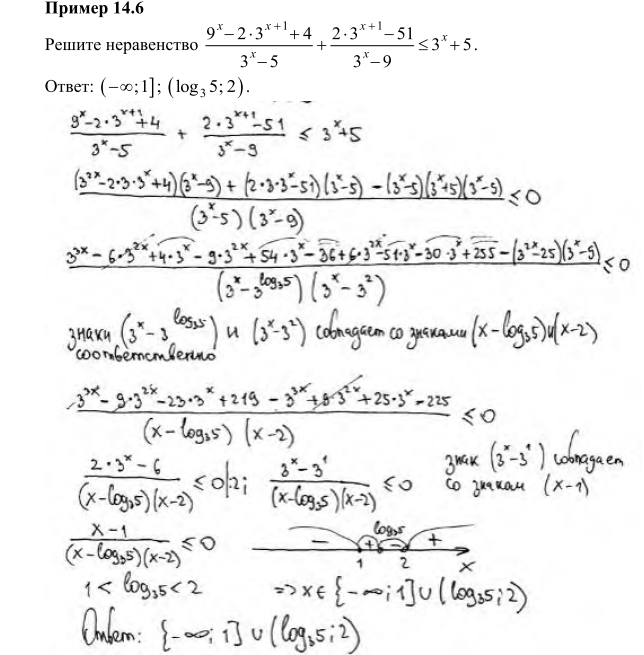 Пример 14.6
Решите неравенство (9^x − 2·3^(x+1) + 4)/(3^x − 5) + (2·3^(x+1) − 51)/(3^x − 9) ≤ 3^x + 5.
Ответ: (−∞;1]; (log_3 5; 2).
(9^x − 2·3^(x+1) + 4)/(3^x − 5) + (2·3^(x+1) − 51)/(3^x − 9) ≤ 3^x + 5
((3^(2x) − 2·3·3^x + 4)(3^x − 9) + (2·3·3^x − 51)(3^x − 5) − (3^x − 5)(3^x + 5)(3^x − 9))/((3^x − 5)(3^x − 9)) ≤ 0
(3^(3x) − 6·3^(2x) + 4·3^x − 9·3^(2x) + 54·3^x − 36 + 6·3^(2x) − 51·3^x − 30·3^x + 255 − (3^(2x) − 25)(3^x − 9))/((3^x − 3^(log_3 5))(3^x − 3^2)) ≤ 0
знаки (3^x − 3^(log_3 5)) и (3^x − 3^2) совпадает со знаками (x − log_3 5) и (x − 2)
соответственно
(3^(3x) − 9·3^(2x) − 23·3^x + 219 − 3^(3x) + 9·3^(2x) + 25·3^x − 225)/((x − log_3 5)(x − 2)) ≤ 0
(2·3^x − 6)/((x − log_3 5)(x − 2)) ≤ 0 |:2; (3^x − 3^1)/((x − log_3 5)(x − 2)) ≤ 0 знак (3^x − 3^1) совпадает
со знаком (x − 1)
(x − 1)/((x − log_3 5)(x − 2)) ≤ 0 − 1 + log_3 5 − 2 + x
1 < log_3 5 < 2 => x ∈ {−∞; 1] ∪ (log_3 5; 2)
Ответ: {−∞; 1] ∪ (log_3 5; 2)